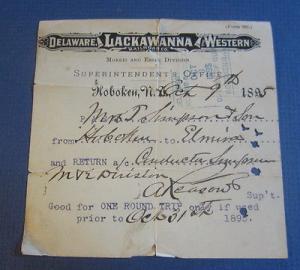 (Form 98)
DELAWARE, LACKAWANNA & WESTERN
RAILROAD CO.
MORRIS AND ESSEX DIVISION
SUPERINTENDENT'S OFFICE
Hoboken, N.J. Oct 9th 1895
Pass Mrs T. Simpson & Son
from Hoboken to Elmira
and RETURN a/c Conductor Simpson
M & E Division
Sup't.
Good for ONE ROUND TRIP only if used
prior to Oct 31st 1895.